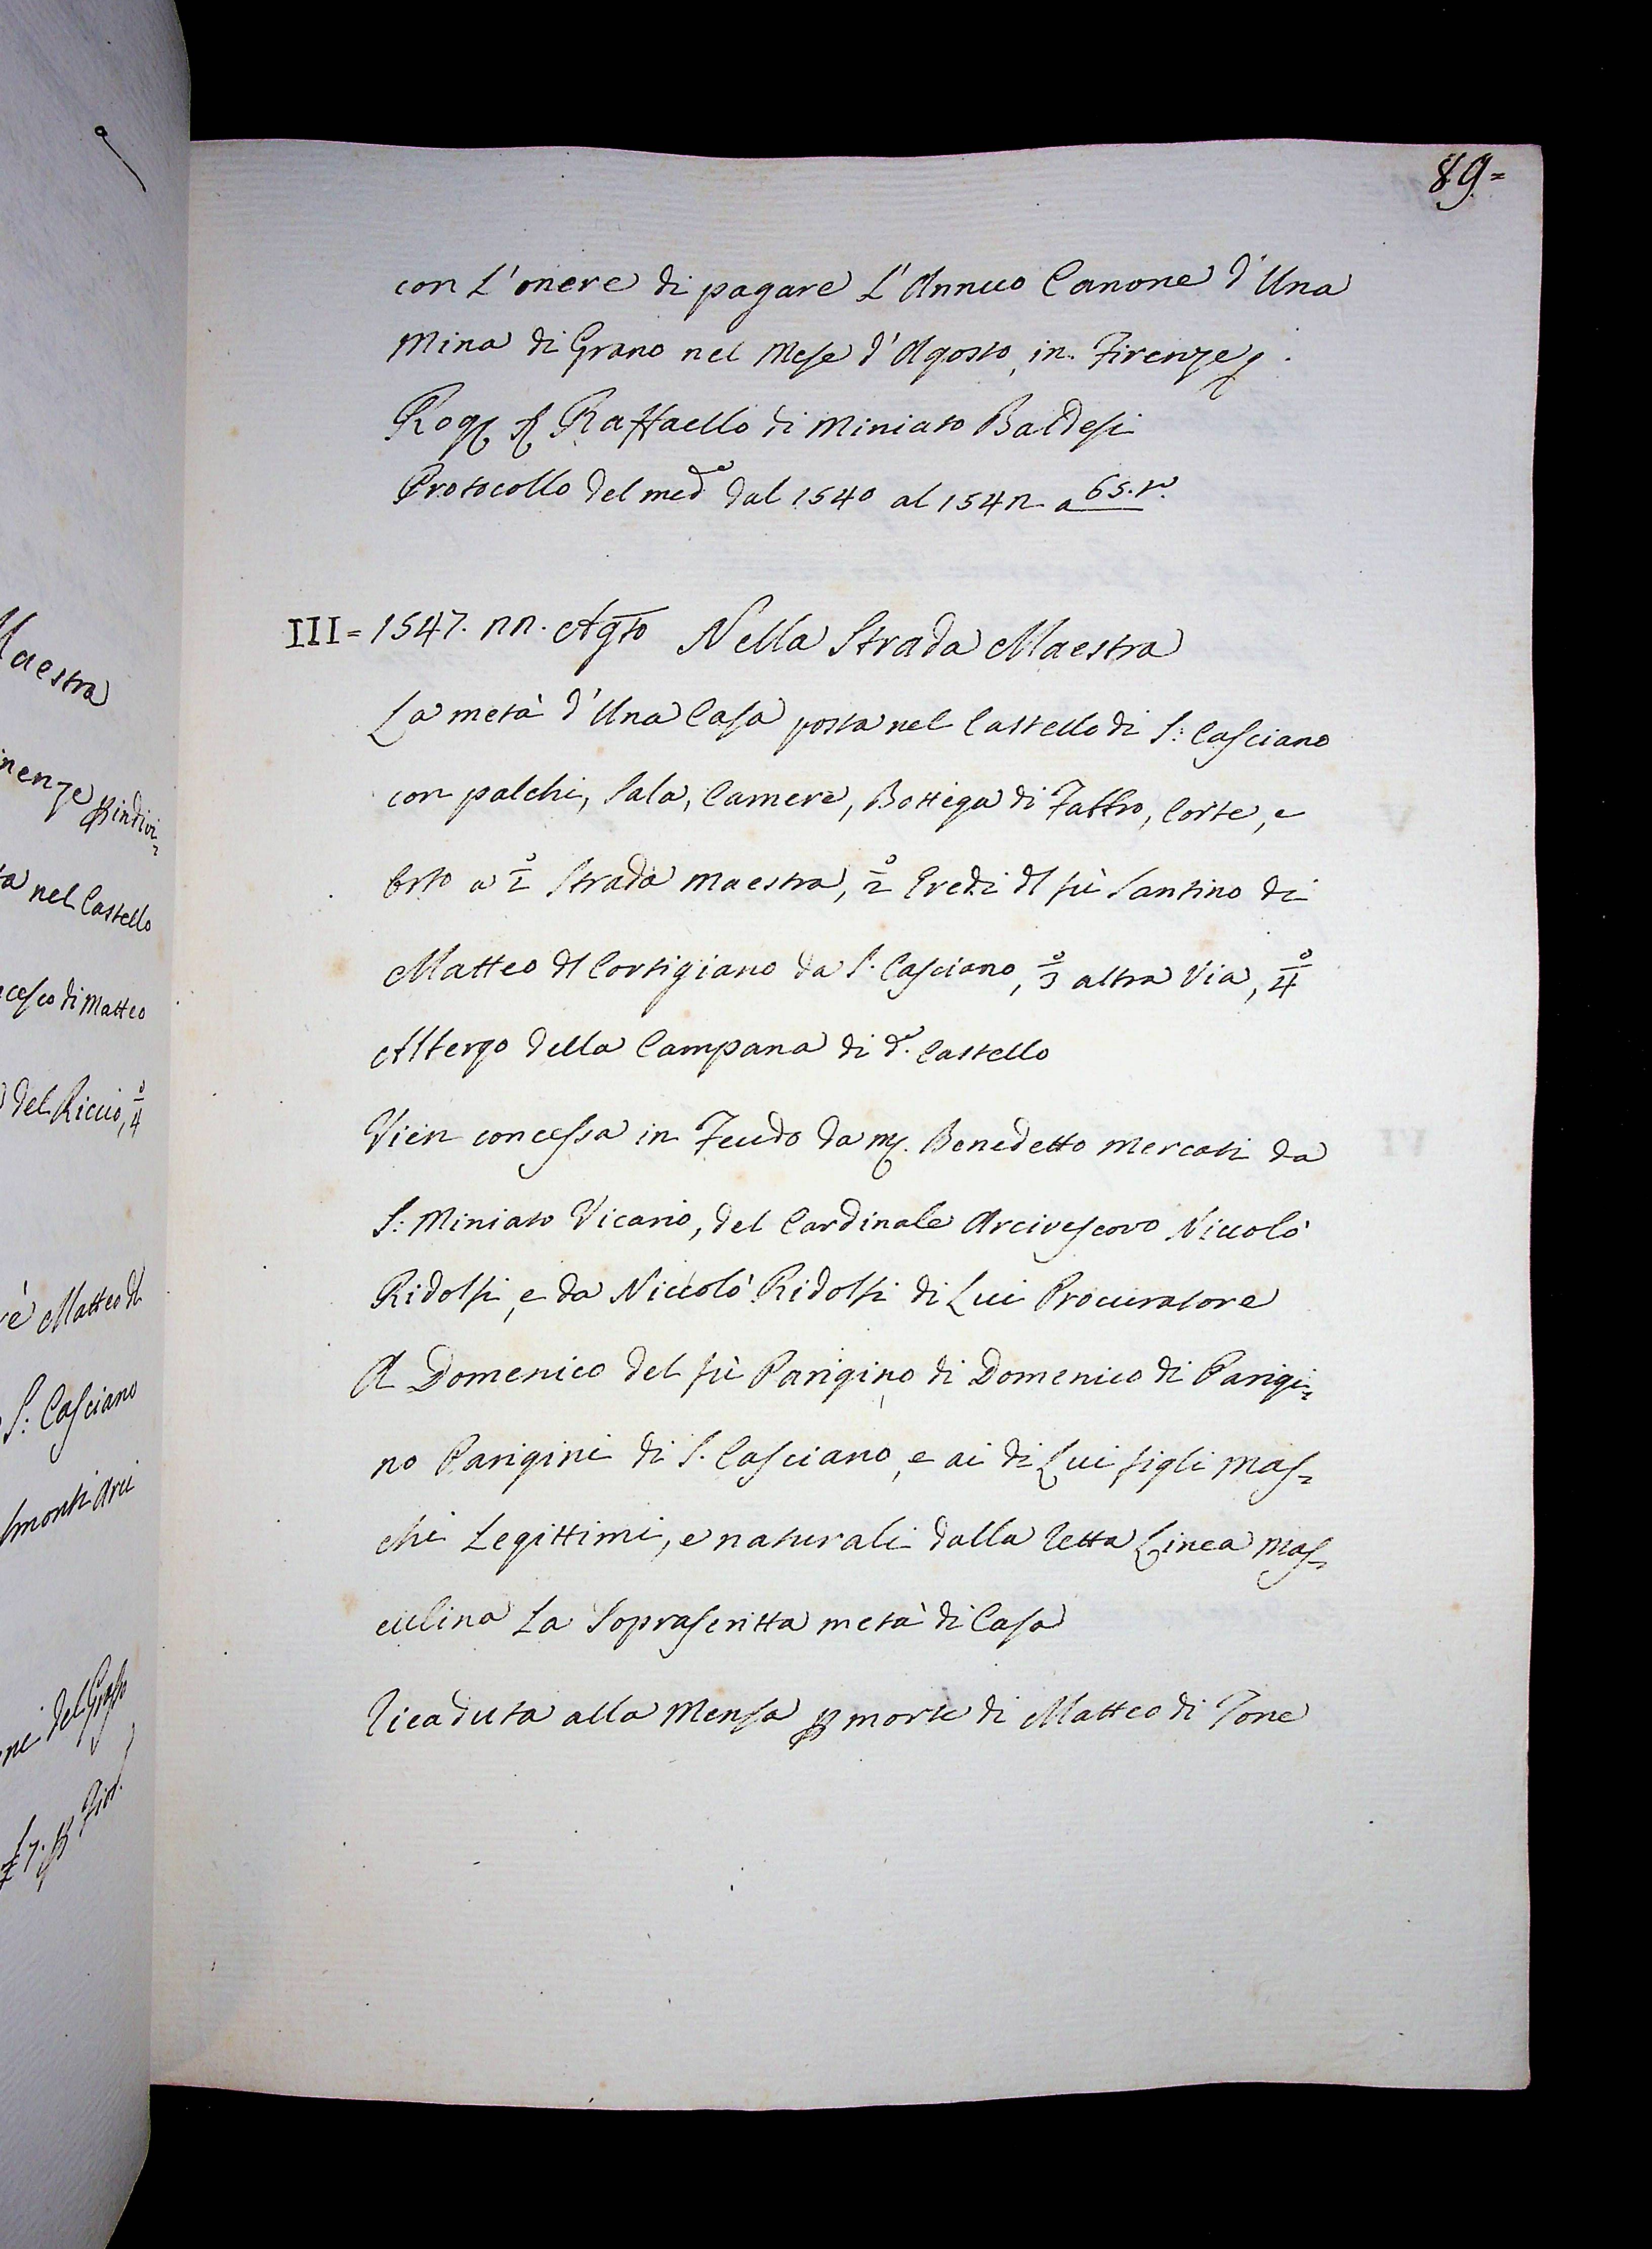 89=
con L'onere di pagare L'Annuo Canone d'Una
Mina di Grano nel Mese d'Agosto, in Firenze
Rog. Raffaello di Miniato Baldesi
Protocollo del med.º dal 1540 al 1542 a 65. r.º
III= 1547. 22. Agto Nella Strada Maestra
La metà d'Una Casa posta nel Castello di S: Casciano
con palchi, Sala, Camere, Bottega di Fabbro, Corte, e
Orto a 1/2 Strada Maestra, º/2 Eredi dl fù Santino di
Matteo dl Cortigiano da S. Casciano, º/3 altra Via, º/4
Albergo della Campana di d.º Castello
Vien concessa in Feudo da m. Benedetto Mercati da
S: Miniato Vicario, del Cardinale Arcivescovo Niccolò
Ridolfi, e da Niccolò Ridolfi di Lui Procuratore
A Domenico del fù Parigino di Domenico di Parigi=
no Parigini di S. Casciano, e ai di Lui figli Mas=
chi Legittimi, e naturali dalla retta Linea Mas=
culina La Soprascritta metà di Casa
Ricaduta alla Mensa p morte di Matteo di Tone
Maestra
p indivi=
ta nel Castello
cesco di Matteo
del Riccio, º/4
Matteo dl
S: Casciano